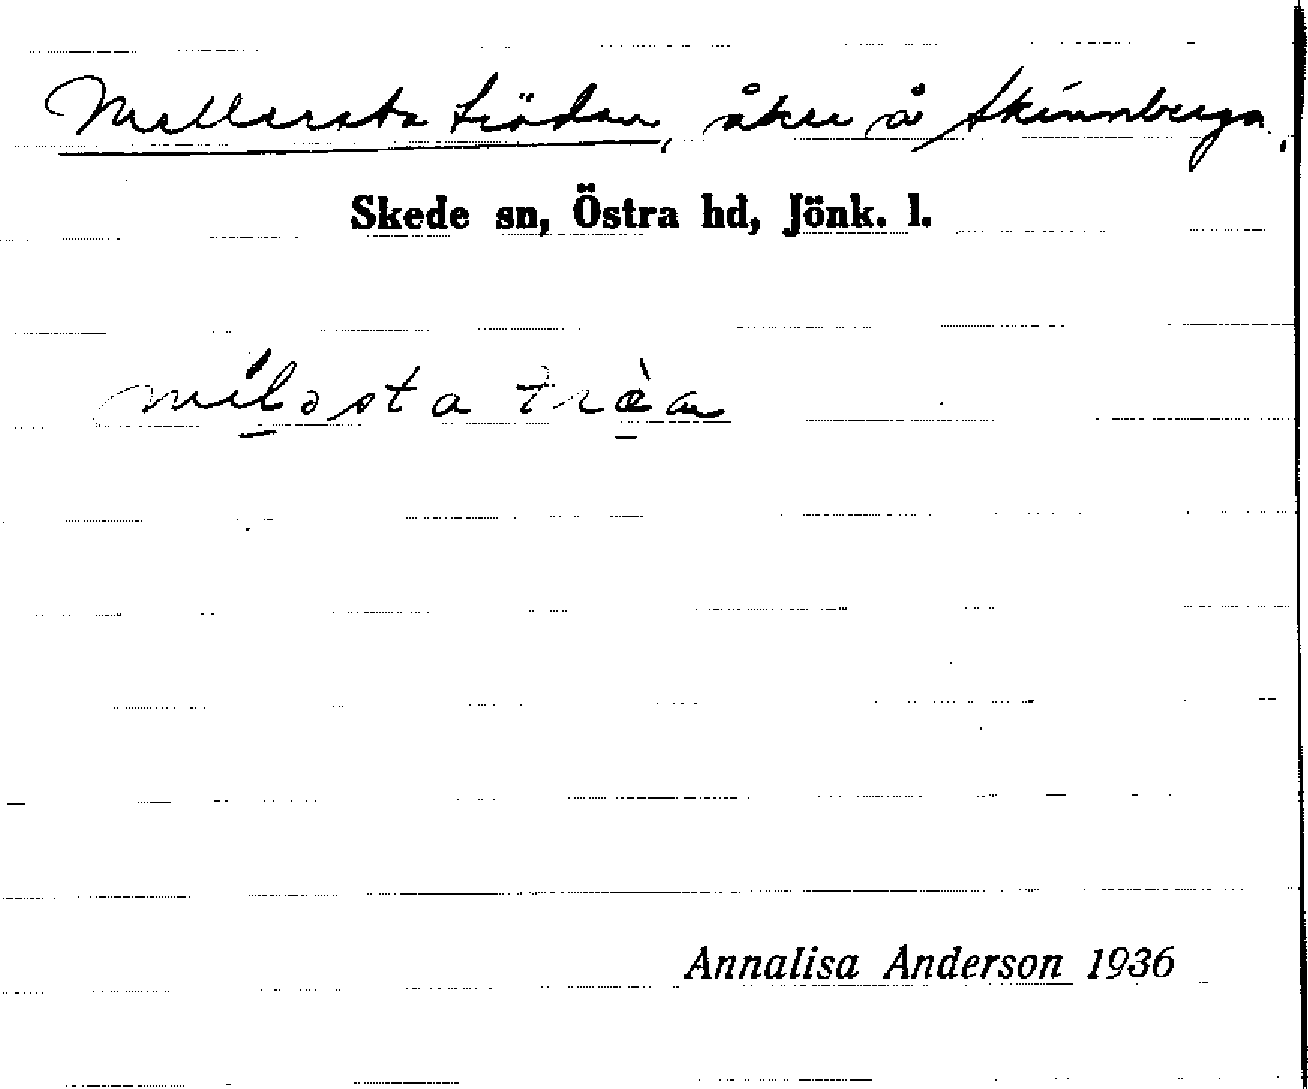 Mellersta Trädan, åker å Skinnberga,
Skede sn, Östra hd, Jönk. l.
mélǝsta træ̀an
Annalisa Anderson 1936